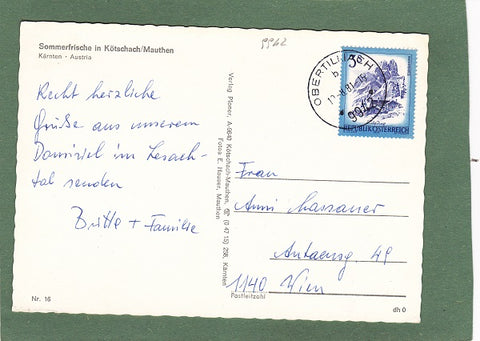 9962
Sommerfrische in Kötschach/Mauthen
Kärnten - Austria
Recht herzliche
Grüße aus unserem
Domizil im Lesach-
tal senden
Britta + Familie
Nr. 16
Verlag Planer, A-9640 Kötschach-Mauthen, (0 47 15) 258, Kärnten
Fotos E. Hauser, Mauthen
OBERTILLIACH
9942
S 3
REPUBLIK ÖSTERREICH
Frau
Anni Massauer
49
1140 Wien
Postleitzahl
dh O